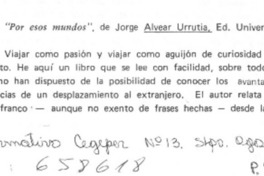 "Por esos mundos", de Jorge Alvear Urrutia, Ed. Univer
Viajar como pasión y viajar como aguijón de curiosidad
to. He aquí un libro que se lee con facilidad, sobre todo
no han dispuesto de la posibilidad de conocer los avanta
cias de un desplazamiento al extranjero. El autor relata
franco — aunque no exento de frases hechas — desde la
rmativo Cegeper Nº 13.
: 658618 P.